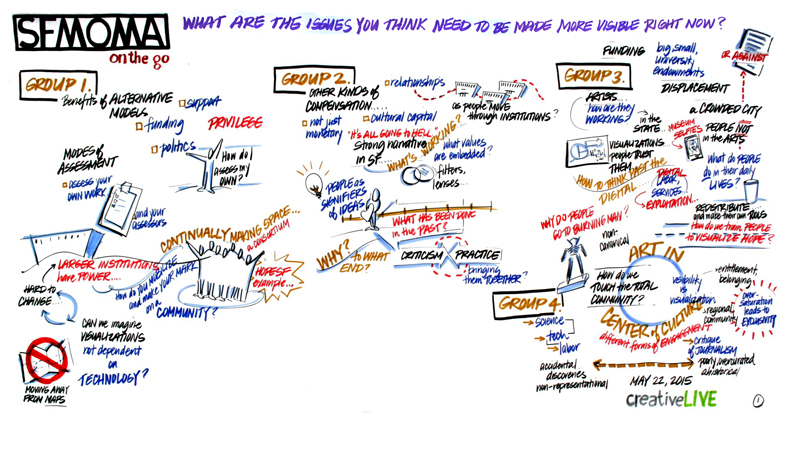 SFMOMA
on the go
WHAT ARE THE ISSUES YOU THINK NEED TO BE MADE MORE VISIBLE RIGHT NOW?
GROUP 1.
Benefits of ALTERNATIVE
MODELS
support
funding
politics
PRIVILEGE
MODES of
ASSESSMENT
assess your
own WORK
and your
assessors
How do I
assess my
own?
CONTINUALLY MAKING SPACE...
in CONSORTIUM
LARGER INSTITUTIONS
have POWER....
HARD to
CHANGE...
How do you
and make your MARK
on a
COMMUNITY?
HOPE SF
example...
CAN we imagine
VISUALIZATIONS
not dependent
on
TECHNOLOGY?
MOVING AWAY
FROM MAPS
GROUP 2.
OTHER KINDS of
COMPENSATION....
relationships
not just
monetary
cultural capital
as people MOVE
through INSTITUTIONS?
"IT'S ALL GOING to HELL"
Strong narrative
in SF...
WHAT'S WORKING?
what values
are embedded?
filters,
lenses...
PEOPLE as
SIGNIFIERS
of IDEAS
WHAT HAS BEEN DONE
in the PAST?
WHY?
to WHAT
END?
CRITICISM
PRACTICE
bringing
them TOGETHER?
GROUP 3.
FUNDING
big, small,
university,
endowments
OR AGAINST
DISPLACEMENT
a CROWDED CITY
ARTISTS
... how are they
WORKING?
in the
STATE..
MUSEUM
SELFIES
PEOPLE NOT
in the ARTS
VISUALIZATIONS
people TRUST
THEM...
HOW TO THINK PAST the
DIGITAL
DIGITAL
LABOR,
SERVICES
EXPLOITATION...
What do PEOPLE
do in their daily
LIVES?
REDISTRIBUTE
and make their own TOOLS
How do we train PEOPLE
to VISUALIZE HOPE?
WHY DO PEOPLE
GO TO BURNING MAN?
non-
canonical
ART IN
How do we
TOUCH the TOTAL
COMMUNITY?
CENTER of CULTURE
visibility
vs
visualization
entitlement,
belonging
regional,
community
over-
saturation
leads to
EXCLUSIVITY
different forms of ENGAGEMENT
GROUP 4
science
tech
labor
critique
of JOURNALISM
poorly executed
ahistorical
accidental
discoveries
non-representational
MAY 22, 2015
creativeLIVE
1